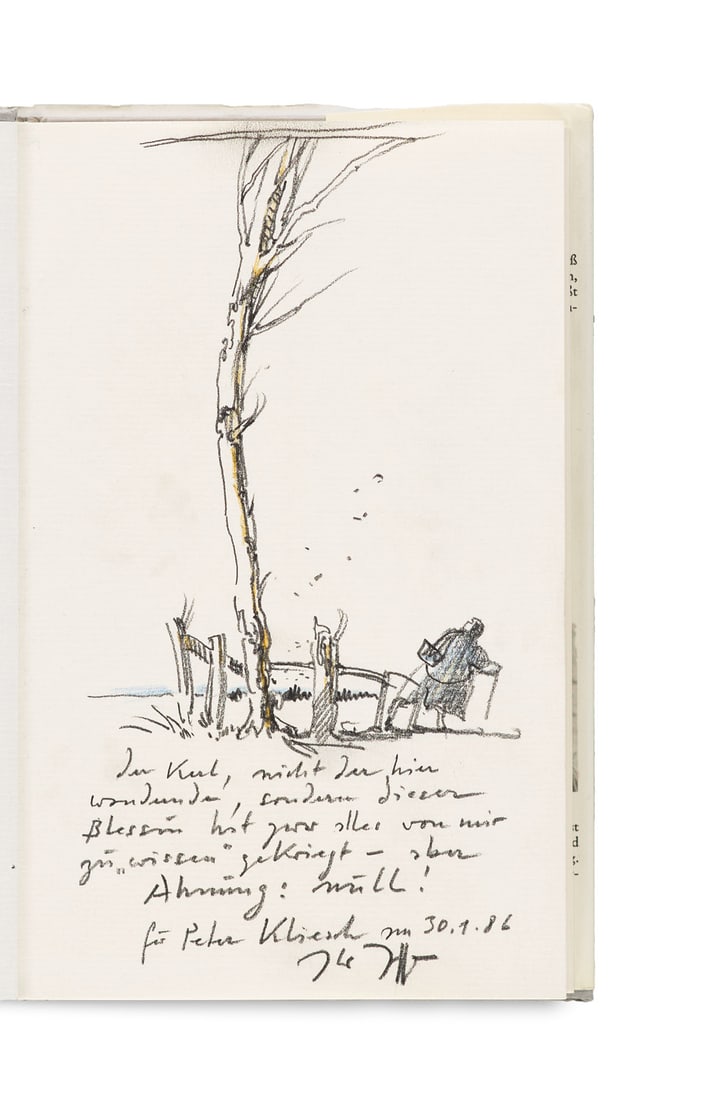 der Kerl, nicht der hier
wandernde, sondern dieser
Blessin hat zwar alles von mir
zu „wissen“ gekriegt – aber
Ahnung: null!
für Peter Kliesch am 30.1.86
ß
t
d